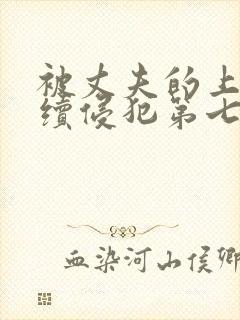 被丈夫的上
续侵犯第七
血染河山侯卿